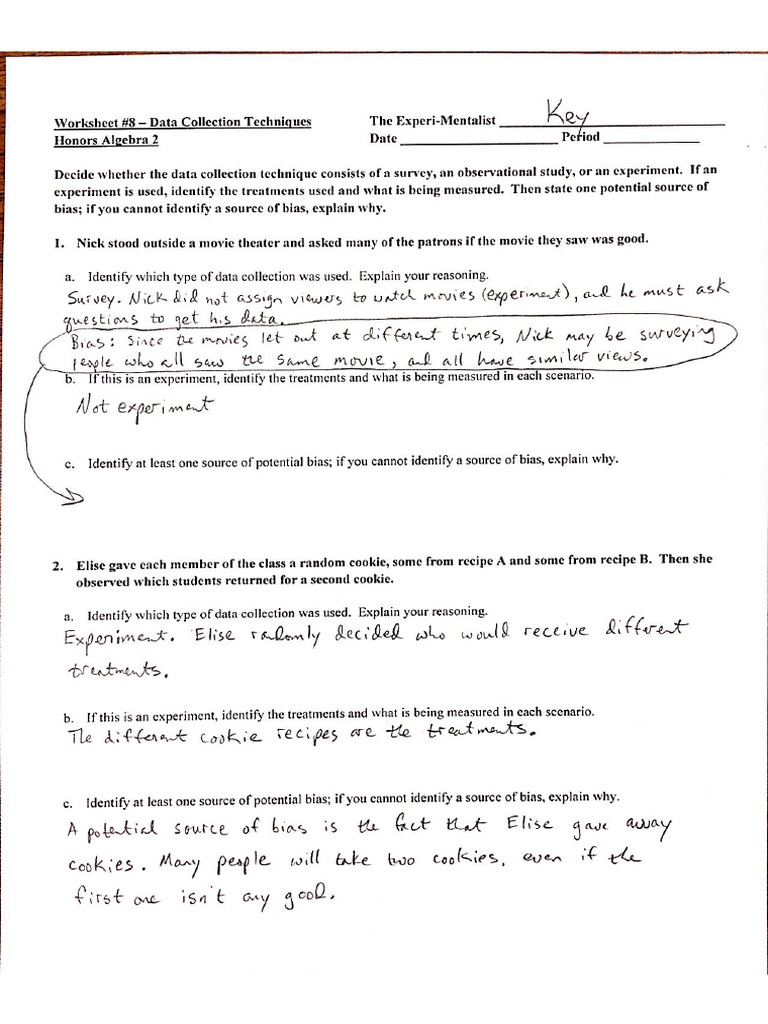 Worksheet #8 – Data Collection Techniques
The Experi-Mentalist Key
Honors Algebra 2
Date Period
Decide whether the data collection technique consists of a survey, an observational study, or an experiment. If an
experiment is used, identify the treatments used and what is being measured. Then state one potential source of
bias; if you cannot identify a source of bias, explain why.
1. Nick stood outside a movie theater and asked many of the patrons if the movie they saw was good.
a. Identify which type of data collection was used. Explain your reasoning.
Survey. Nick did not assign viewers to watch movies (experiment), and he must ask
questions to get his data.
Bias: Since the movies let out at different times, Nick may be surveying
people who all saw the same movie, and all have similar views.
b. If this is an experiment, identify the treatments and what is being measured in each scenario.
Not experiment
c. Identify at least one source of potential bias; if you cannot identify a source of bias, explain why.
2. Elise gave each member of the class a random cookie, some from recipe A and some from recipe B. Then she
observed which students returned for a second cookie.
a. Identify which type of data collection was used. Explain your reasoning.
Experiment. Elise randomly decided who would receive different
treatments.
b. If this is an experiment, identify the treatments and what is being measured in each scenario.
The different cookie recipes are the treatments.
c. Identify at least one source of potential bias; if you cannot identify a source of bias, explain why.
A potential source of bias is the fact that Elise gave away
cookies. Many people will take two cookies, even if the
first one isn't any good.